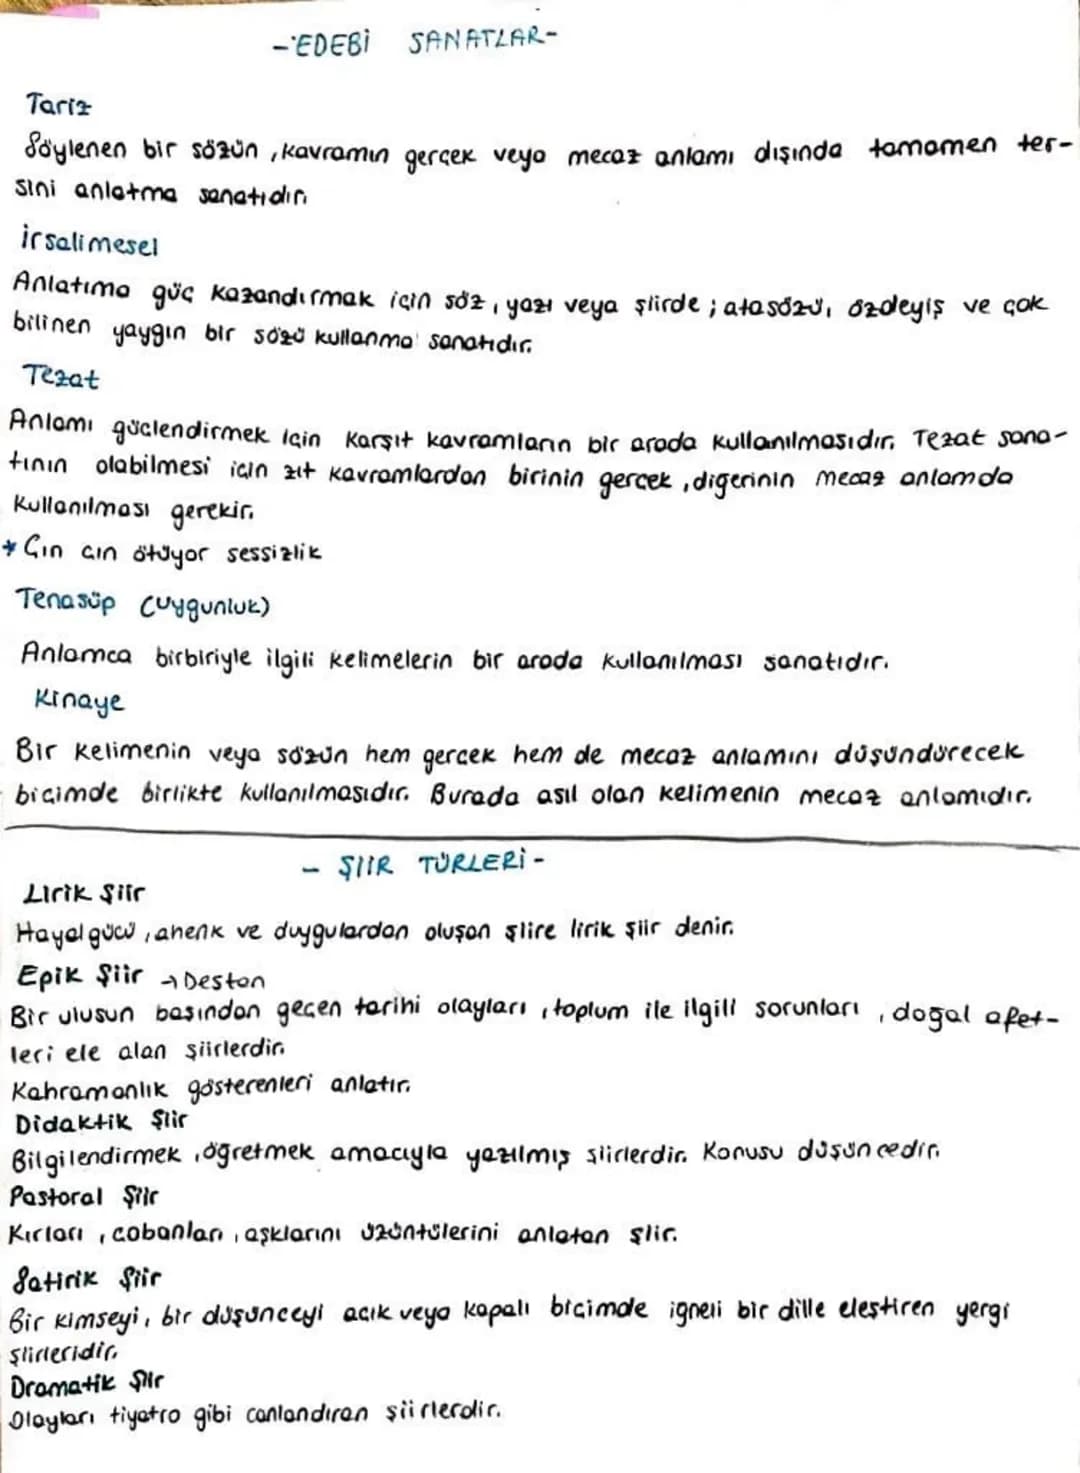 -EDEBİ SANATLAR-
Tariz
Söylenen bir sözün, kavramın gerçek veya mecaz anlamı dışında tamamen ter-
sini anlatma sanatıdır.
İrsalimesel
Anlatıma güç kazandırmak için söz, yazı veya şiirde; atasözü, özdeyiş ve çok
bilinen yaygın bir sözü kullanma sanatıdır.
Tezat
Anlamı güçlendirmek için karşıt kavramların bir arada kullanılmasıdır. Tezat sana-
tının olabilmesi için zıt kavramlardan birinin gerçek, digerinin mecaz anlamda
kullanılması gerekir.
* Çın çın ötüyor sessizlik
Tenasüp (Uygunluk)
Anlamca birbiriyle ilgili kelimelerin bir arada kullanılması sanatıdır.
Kinaye
Bir kelimenin veya sözün hem gerçek hem de mecaz anlamını düşündürecek
biçimde birlikte kullanılmasıdır. Burada asıl olan kelimenin mecaz anlamıdır.
- ŞİİR TÜRLERİ -
Lirik Şiir
Hayal gücü, ahenk ve duygulardan oluşan şiire lirik şiir denir.
Epik Şiir → Destan
Bir ulusun başından geçen tarihi olayları, toplum ile ilgili sorunları, doğal afet-
leri ele alan şiirlerdir.
Kahramanlık gösterenleri anlatır.
Didaktik Şiir
Bilgilendirmek, öğretmek amacıyla yazılmış şiirlerdir. Konusu düşüncedir.
Pastoral Şiir
Kırları, çobanları, aşklarını üzüntülerini anlatan şiir.
Satirik Şiir
Bir kimseyi, bir düşünceyi açık veya kapalı biçimde igneli bir dille eleştiren yergi
şiirleridir.
Dramatik Şiir
Olayları tiyatro gibi canlandıran şiirlerdir.